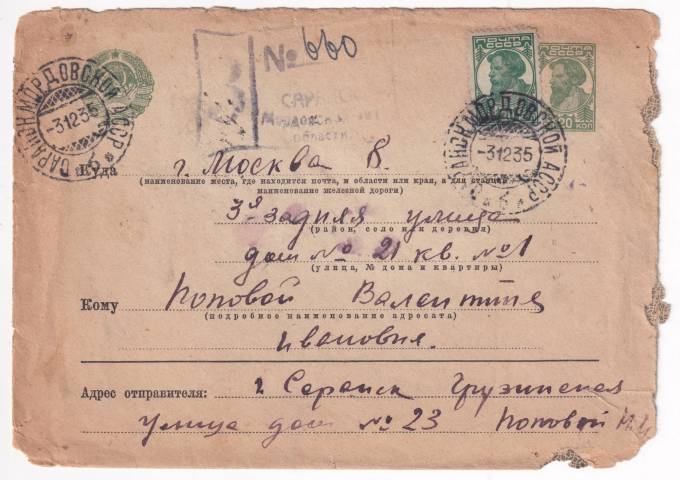 № 660
ПОЧТА СССР
ПОЧТА СССР
20 КОП
САРАНСК МОРДОВСКОЙ АССР
-31235
б
САРАНСК МОРДОВСКОЙ АССР
-31235
б
области
Куда г. Москва 8.
(наименование места, где находится почта, и области или края, а для станций
наименование железной дороги)
3я задняя улица
(район, село или деревня)
дом № 21 кв. №1
(улица, № дома и квартиры)
Кому Поповой Валентине
(подробное наименование адресата)
Ивановне.
Адрес отправителя: г Саранск Грузинская
улица дом № 23 Поповой